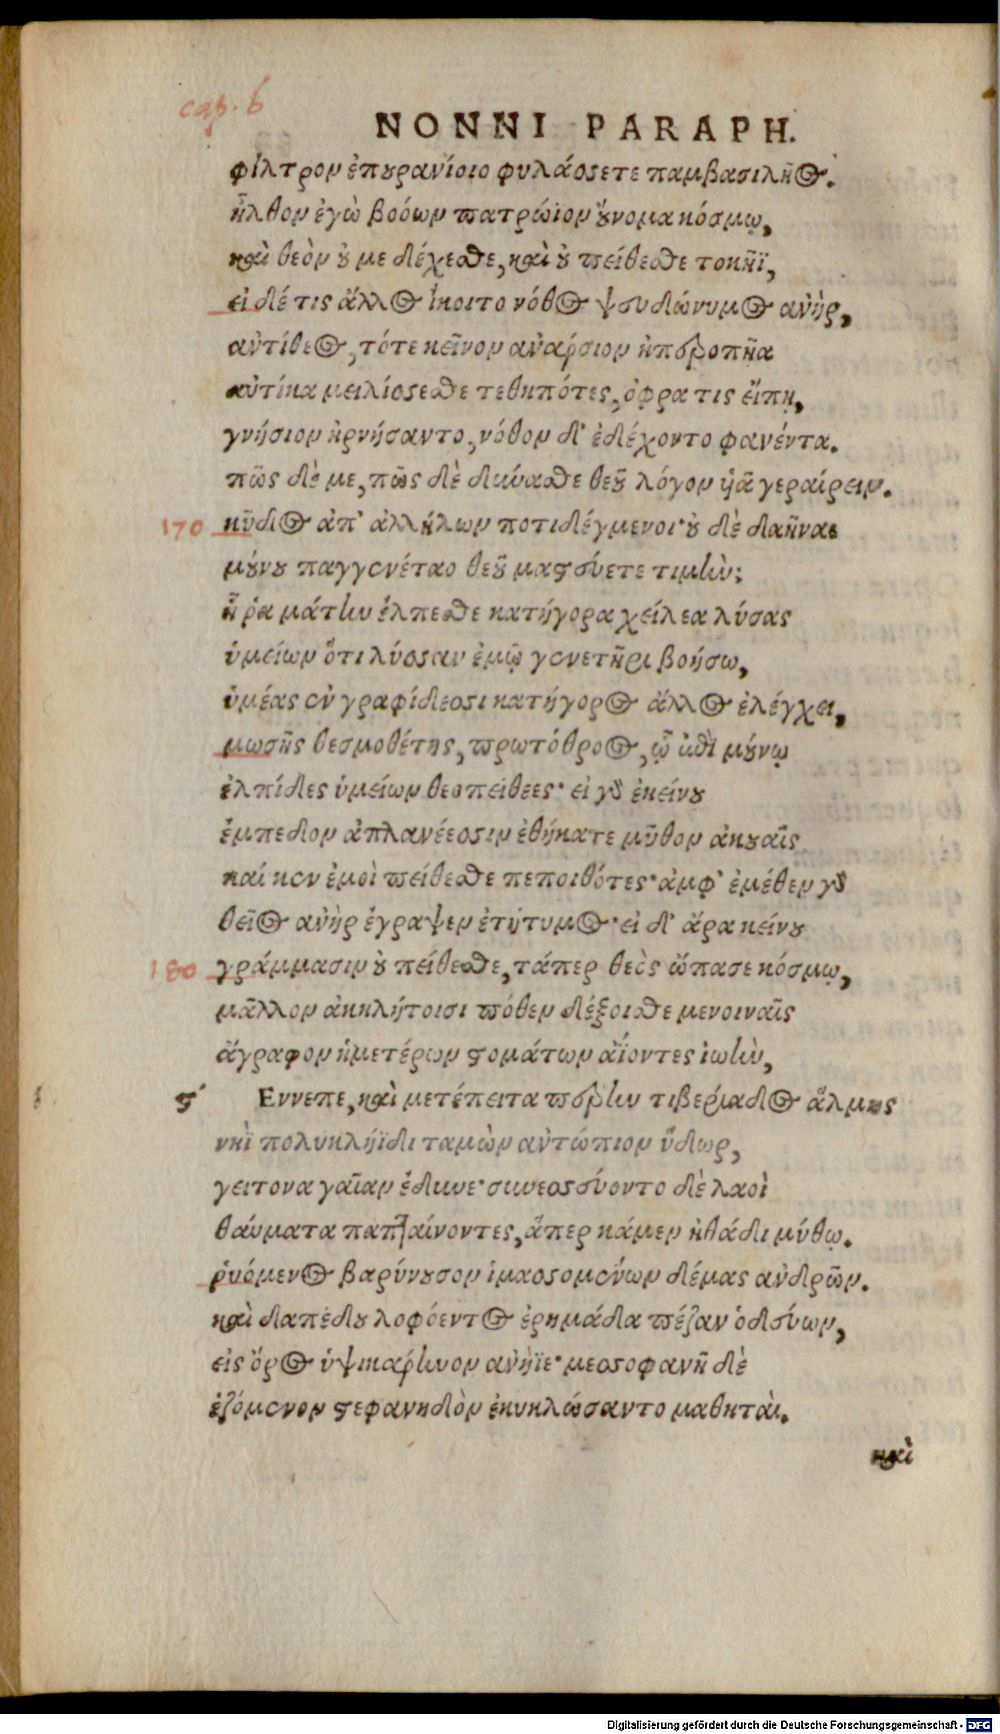 cap. 6
NONNI PARAPH.
φίλτρον ἐπουρανίοιο φυλάσσετε παμβασιλῆος.
ἦλθον ἐγὼ βοόων πατρώϊον οὔνομα κόσμῳ,
καὶ θεὸν οὔ με δέχεσθε, καὶ οὐ πείθεσθε τοκῆϊ,
εἰ δέ τις ἄλλος ἵκοιτο νόθος ψευδώνυμος ἀνὴρ,
ἀντίθεος, τότε κεῖνον ἀνάρσιον ἠπεροπῆα
αὐτίκα μειλίσσεσθε τεθηπότες, ὄφρα τις εἴπῃ,
γνήσιον ἠρνήσαντο, νόθον δ' ἐδέχοντο φανέντα.
πῶς δὲ με, πῶς δὲ δύνασθε θεοῦ λόγον ὑῖα γεραίρειν.
170 κῦδος ἀπ' ἀλλήλων ποτιδέγμενοι· οὐ δὲ δαῆναι
μούνου παγγενέταο θεοῦ μαστεύετε τιμήν;
ἦ ῥα μάτην ἔλπεσθε κατήγορα χείλεα λύσας
ὑμείων ὅτι λύσσαν ἐμῷ γενετῆρι βοήσω,
ὑμέας ἐν γραφίδεσσι κατήγορος ἄλλος ἐλέγχει,
μωσῆς θεσμοθέτης, πρωτόθρος, ᾧ ἔπι μούνῳ
ἐλπίδες ὑμείων θεοπειθέες· εἰ γὰρ ἐκείνου
ἔμπεδον ἀπλανέεσσιν ἐθήκατε μῦθον ἀκουαῖς
καί κεν ἐμοὶ πείθεσθε πεποιθότες· ἀμφ' ἐμέθεν γὰρ
θεῖος ἀνὴρ ἔγραψεν ἐτήτυμος· εἰ δ' ἄρα κείνου
180 γράμμασιν οὐ πείθεσθε, τάπερ θεὸς ὤπασε κόσμῳ,
μᾶλλον ἀκηλήτοισι πόθεν δέξοισθε μενοιναῖς
ἄγραφον ἡμετέρων στομάτων ἀΐοντες ἰωήν,
ϛ´ Εννεπε, καὶ μετέπειτα πέρην τιβεριάδος ἅλμης
νηῒ πολυκλήϊδι ταμὼν αὐτώπιον ὕδωρ,
γείτονα γαῖαν ἔδυνε· συνεσσεύοντο δὲ λαοὶ
θαύματα παπταίνοντες, ἅπερ κάμεν ἠθάδι μύθῳ.
ῥυόμενος βαρύνουσον ἱμασσομένων δέμας ἀνδρῶν.
καὶ δαπέδου λοφόεντος ἐρημάδα πέζαν ὁδεύων,
εἰς ὄρος ὑψικάρηνον ἀνήϊε· μεσσοφανῆ δὲ
ἑζόμενον στεφανηδὸν ἐκυκλώσαντο μαθηταὶ.
καὶ
Digitalisierung gefördert durch die Deutsche Forschungsgemeinschaft - DFG